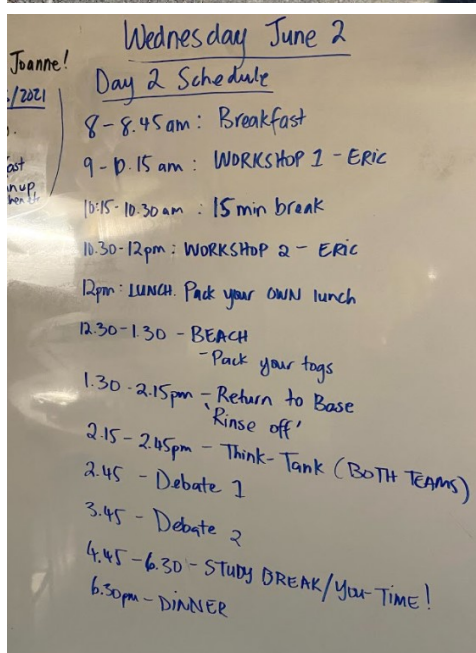 Joanne!
/2021
ast
nup
Wednesday June 2
Day 2 Schedule
8 - 8.45 am : Breakfast
9 - 10.15 am : WORKSHOP 1 - ERIC
10:15 - 10.30 am : 15 min break
10.30 - 12pm : WORKSHOP 2 - ERIC
12pm : LUNCH. Pack your OWN lunch
12.30 - 1.30 - BEACH
- Pack your togs
1.30 - 2.15pm - Return to Base
'Rinse off'
2.15 - 2.45pm - Think-Tank (BOTH TEAMS)
2.45 - Debate 1
3.45 - Debate 2
4.45 - 6.30 - STUDY BREAK/YOU-TIME!
6.30pm - DINNER